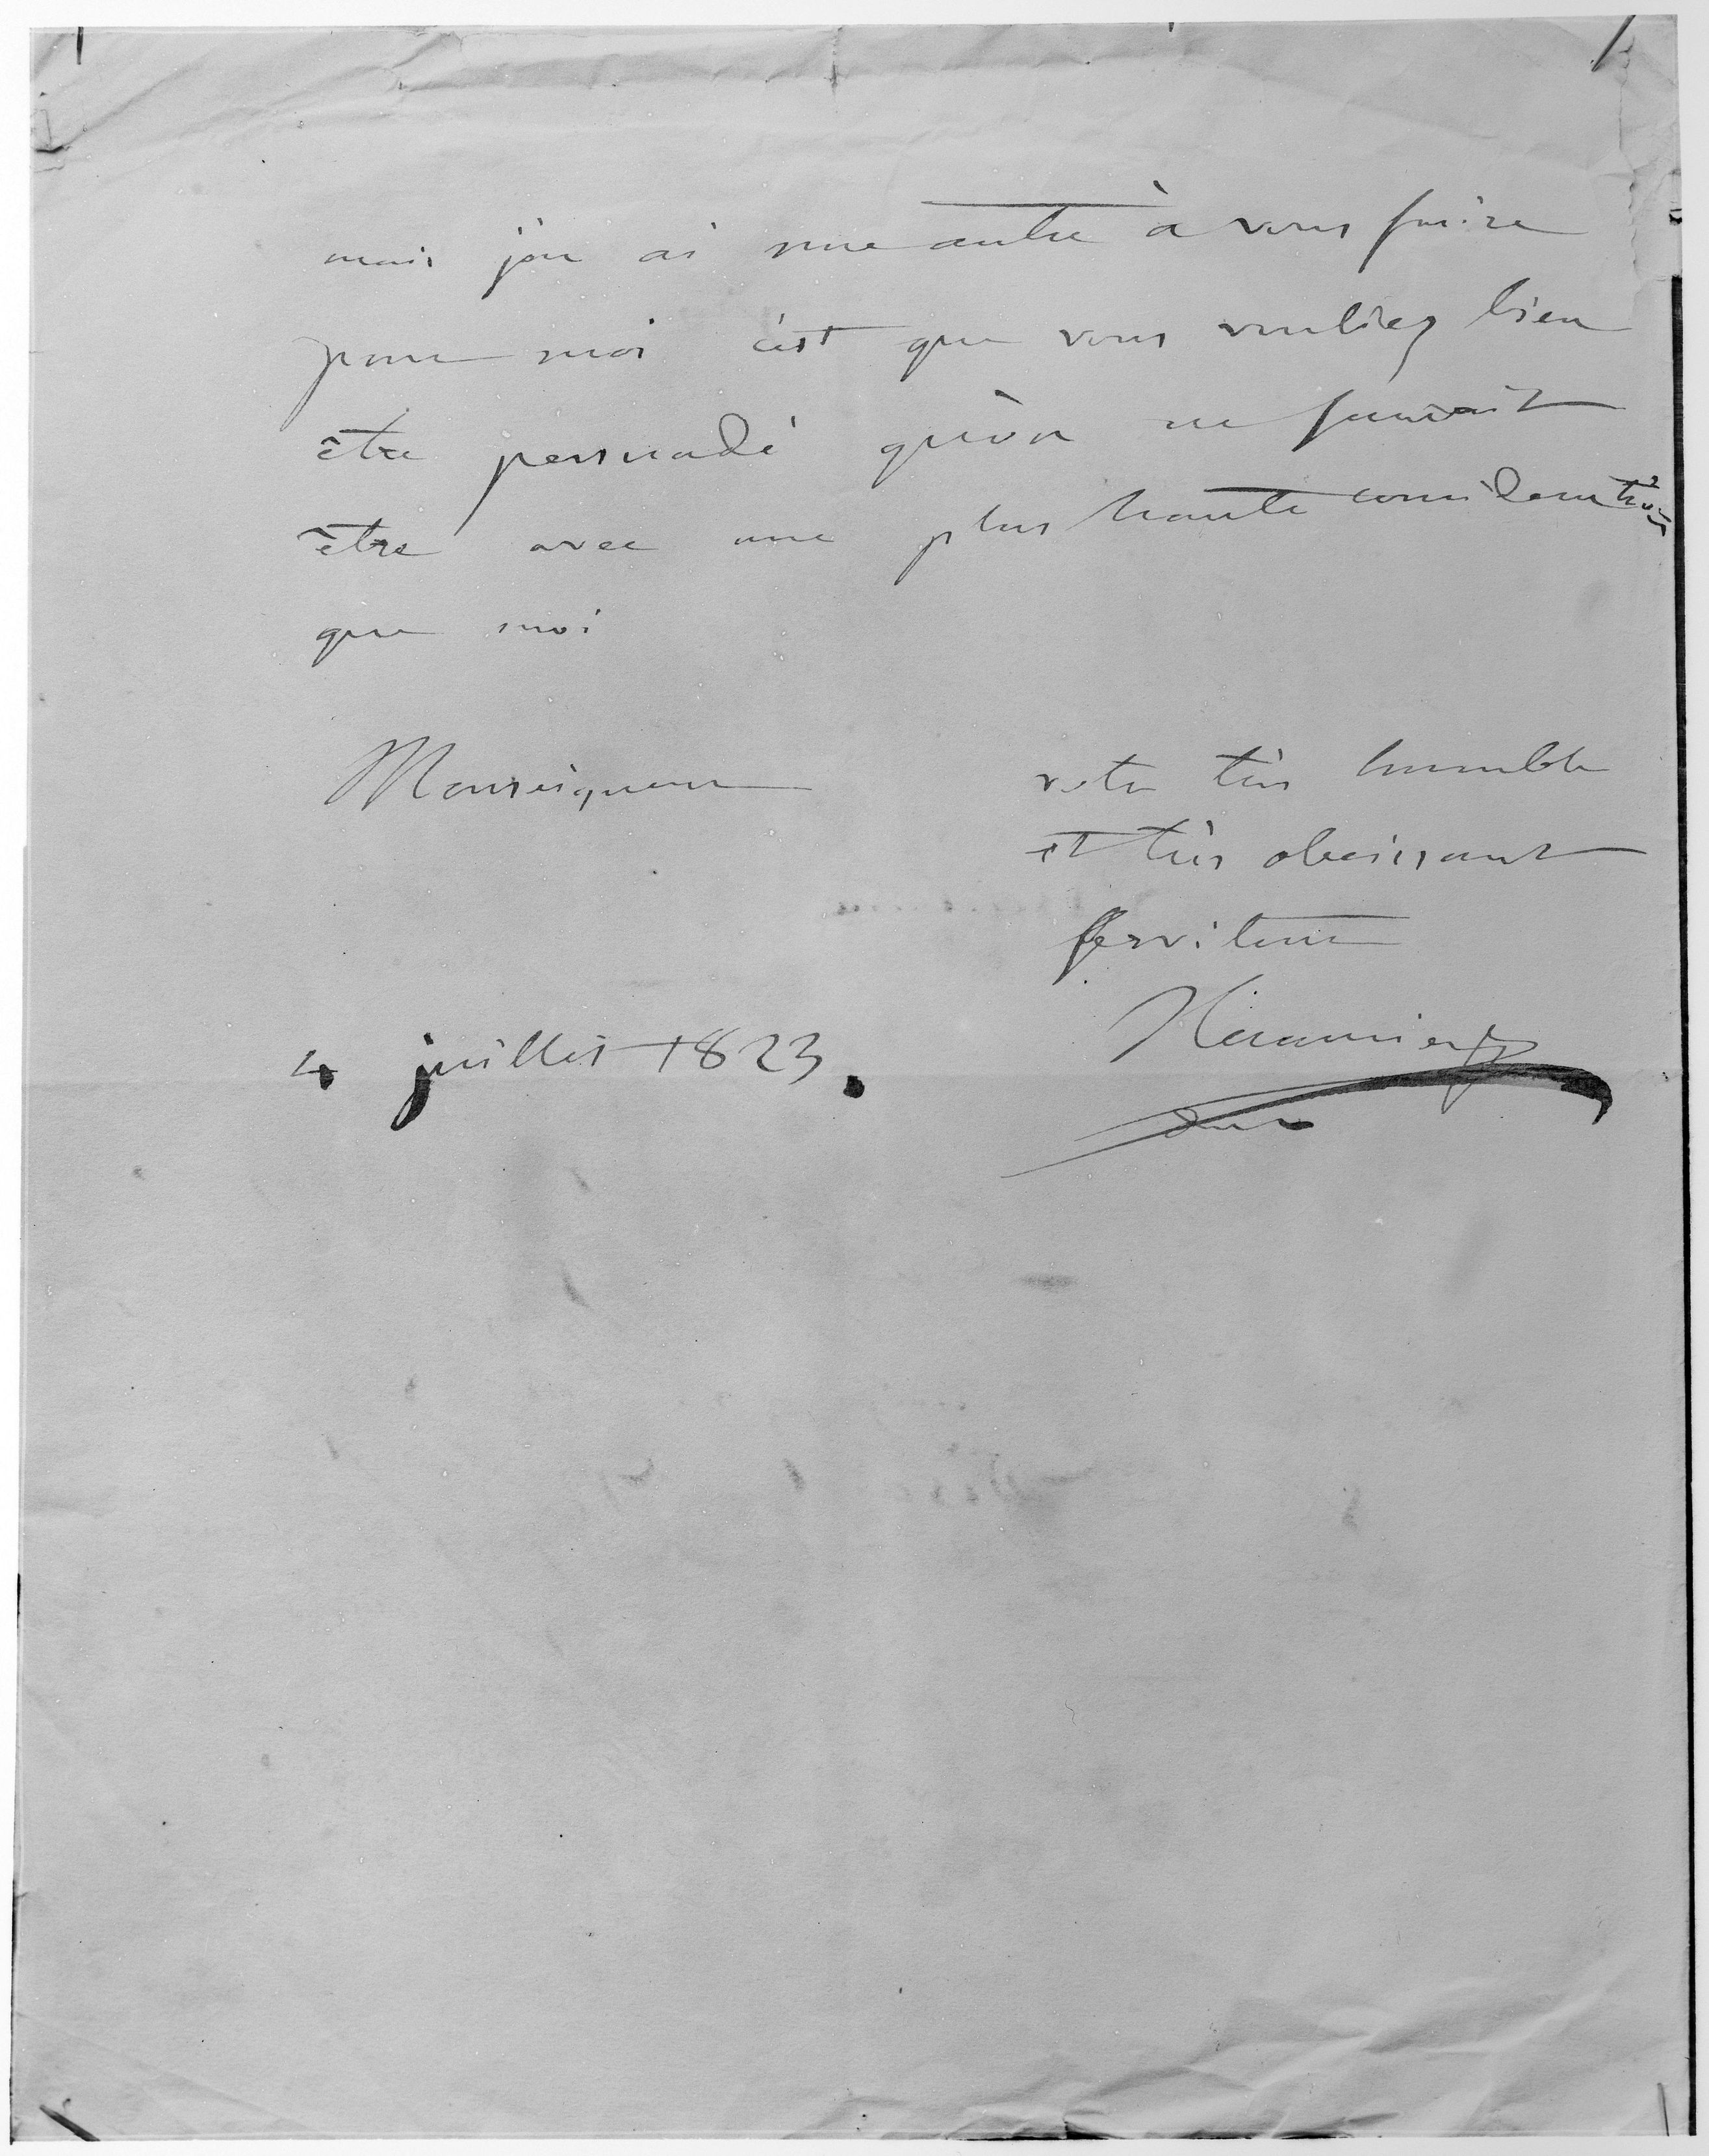 mais j'en ai une autre à vous faire
pour moi c'est que vous vouliez bien
être persuadé qu'on ne saurait
être avec une plus haute consideration
que moi
Monseigneur
votre très humble
et très obeissant
serviteur
4 juillet 1823.